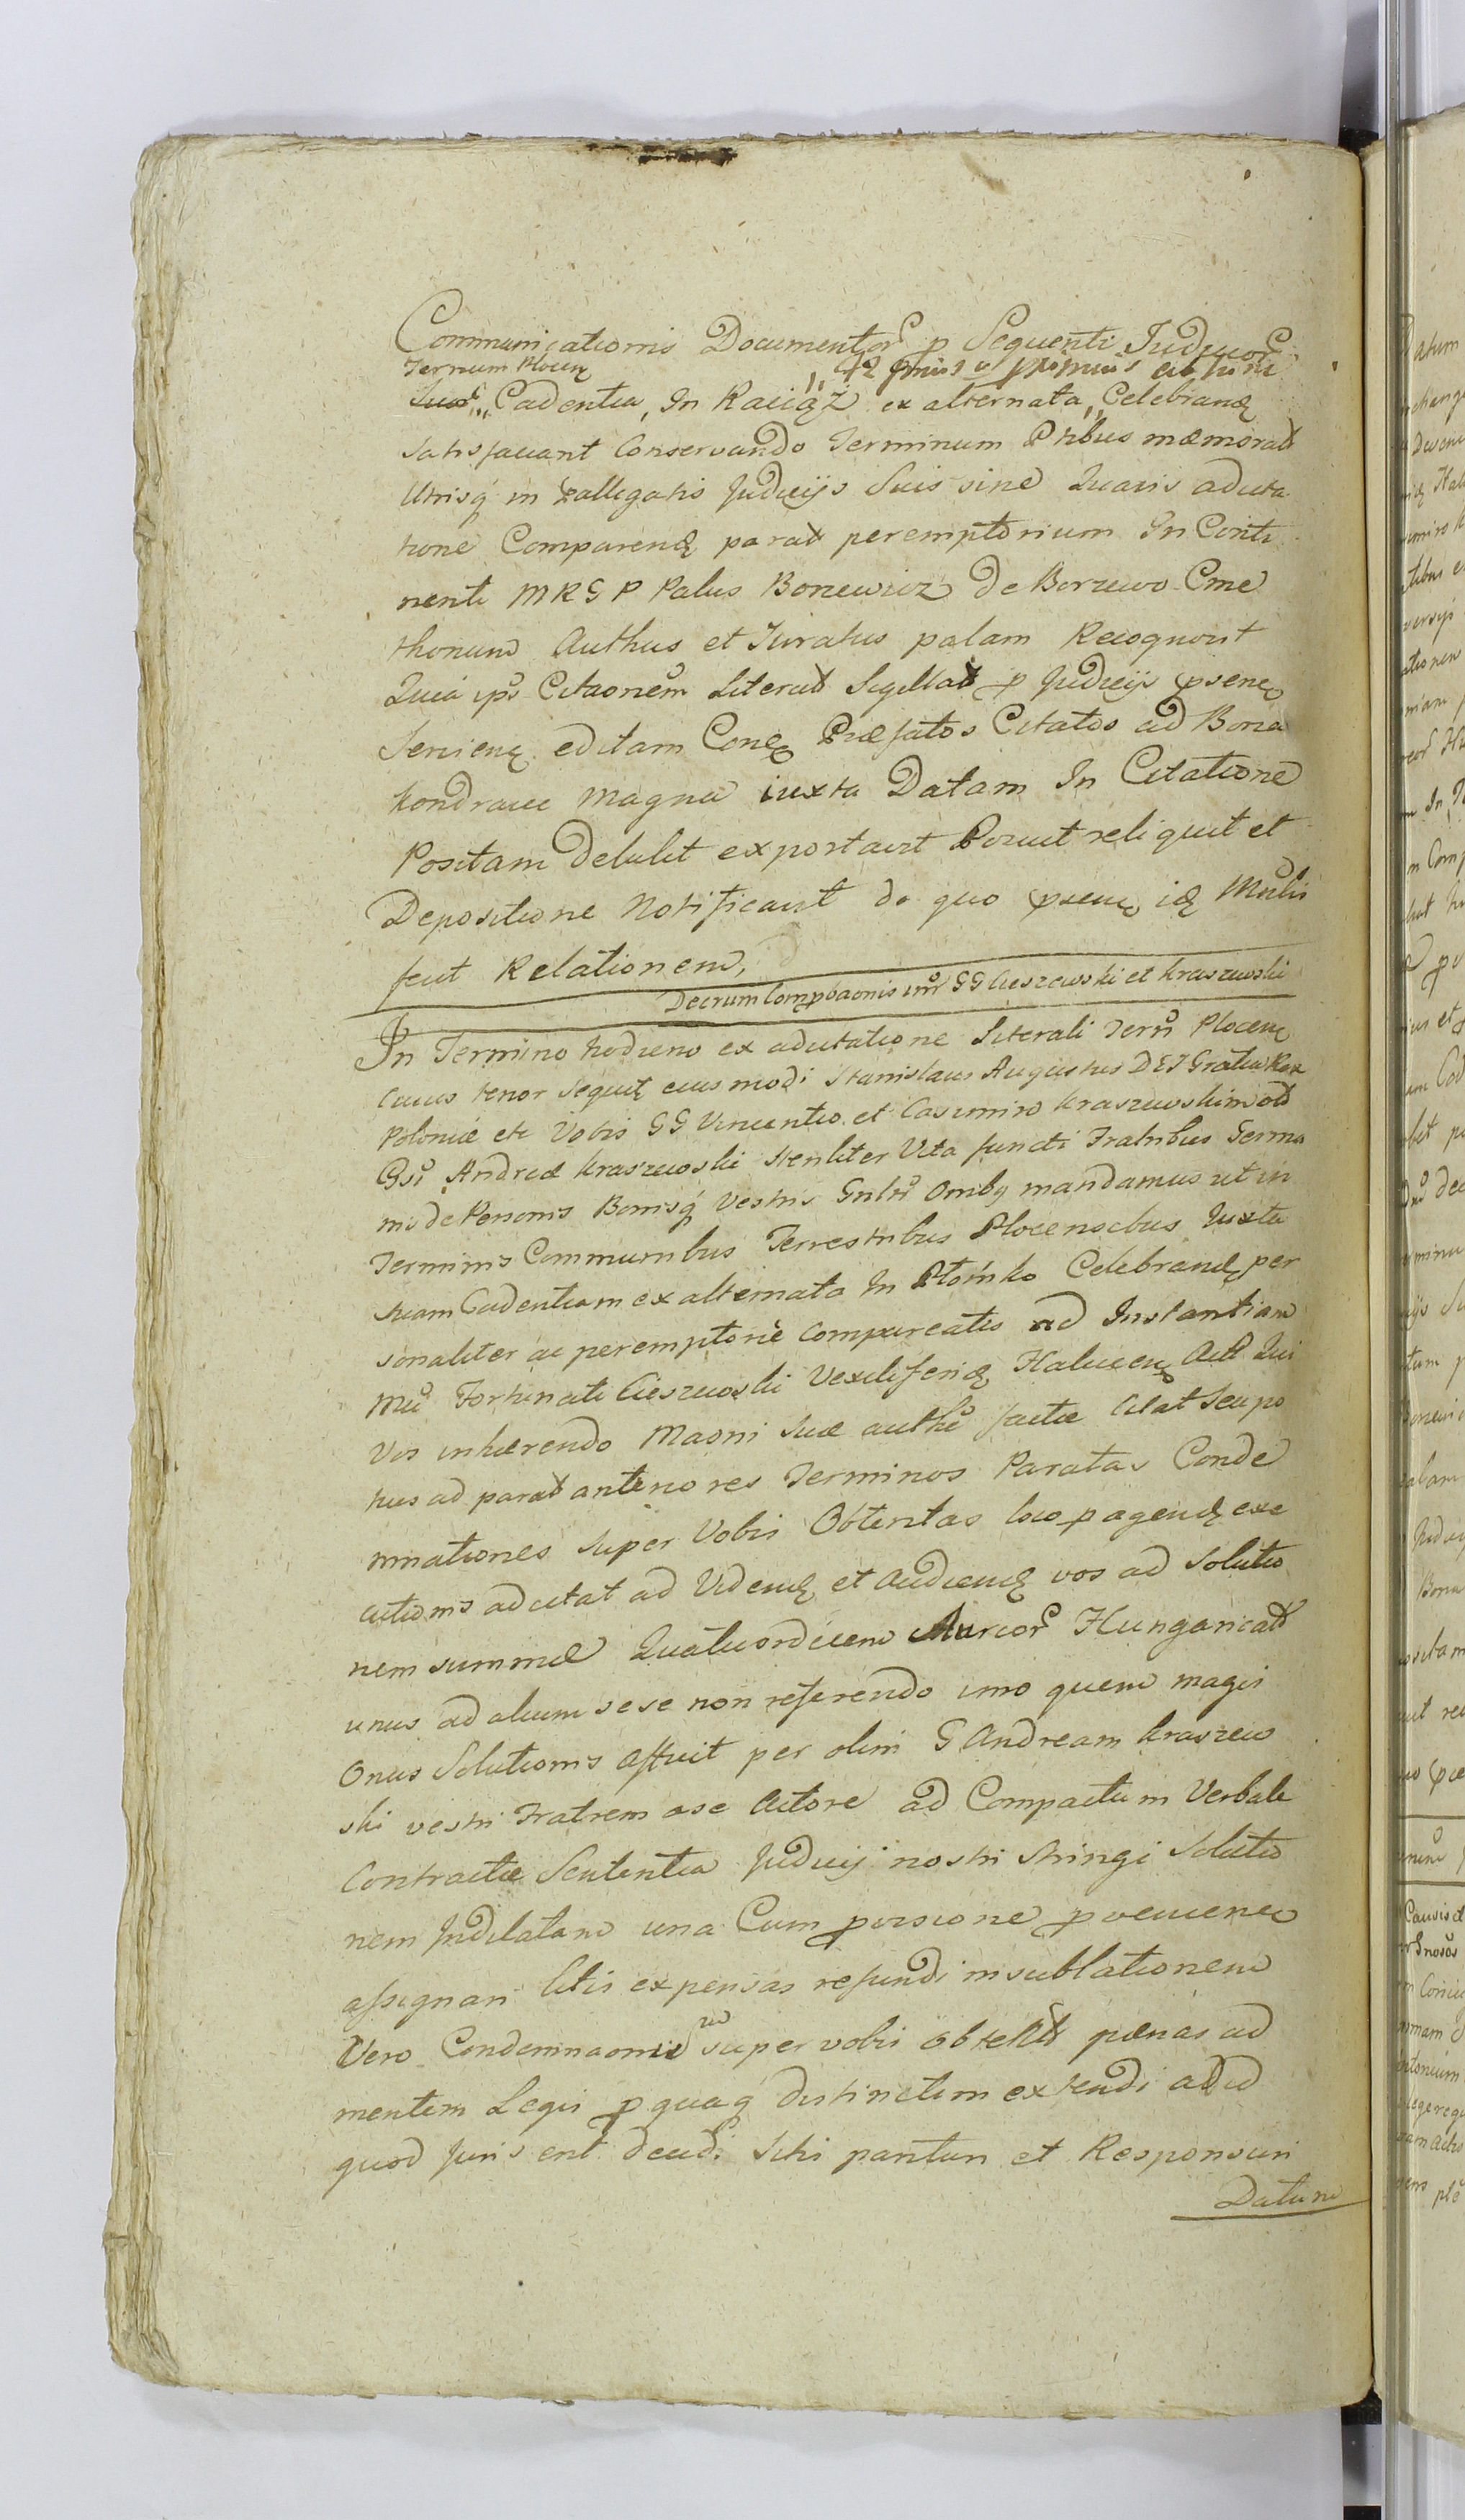 Communicationis Documentor p Sequenti Judicior
Terrum Plocen
Suor Cadentia, In Raciąż ex alternata Celebrand
satisfaciant Conservando Terminum Ptibus mæmorat
Utrisq in allegatis Judicijs Suis sine Quavis adcita
tione Comparend parat peremptorium In Conti
nenti MRGP Palus Borzewicz de Borzewo Cme
thonum Authus et Juratus palam Recognovit
Quia ips Citaonem Literat Sigillat p Judicij psene
Serviene editam Cone Præfatos Citatos ad Bona
Kondrajec Magna iuxta Datam In Citatione
Positam Detulit exportavit Posuit reliquit et
Depositione Notificavit de quo psene id Mnlis
fecit Relationem,
Decrum Compbaonis inr GG Cieszewski et Kraszewski
In Termino hodierno ex adcitatione Literali Terr Plocen
Cuius tenor sequit eius modi Stanislaus Augustus DEI Gratia Rex
Poloniæ etc Vobis GG Vincentio et Casimiro Kraszewskim olt
Gsi Andreæ Kraszewski Sterliter Vita functi Fratribus Germa
nis de Personis Bonisq Vestris Gnlr Omibq mandamus ut in
Terminis Communibus Terrestribus Plocensibus Iuxta
suam Cadentiam ex alternata In Płońsko Celebrand per
sonaliter ac peremptorie compareatis ad Instantiam
Mci Fortunati Cieszewski Vexiliferid Halicen Act Qui
Vos inhærendo Maoni suæ authe factæ Citat seu po
tius ad parat anteriores Terminos Paratas Conde
mnationes super Vobis Obtentas loco pagend exe
cutionis adcitat ad Vidend et Audiend vos ad Solutio
nem summæ Quatuordecem Aureor Hungaricat
unus ad alium sese non referendo imo quem magis
Onus Solutionis afficit per olim G Andream Kraszew
ski vestri Fratrem a se Actore ad Compactum Verbale
Contractæ Sententia Judicij nostri stringi Solutio
nem Indilatam una Cum provisione pveniene
assignari litis expensas refundi in sublationem
Vero Condemnaonis super vobis obtent pænas ad
mentem Legis p quaq distinctim extendi ad id
quod Juris erit decidi Sitis parituri et Responsuri
Datum